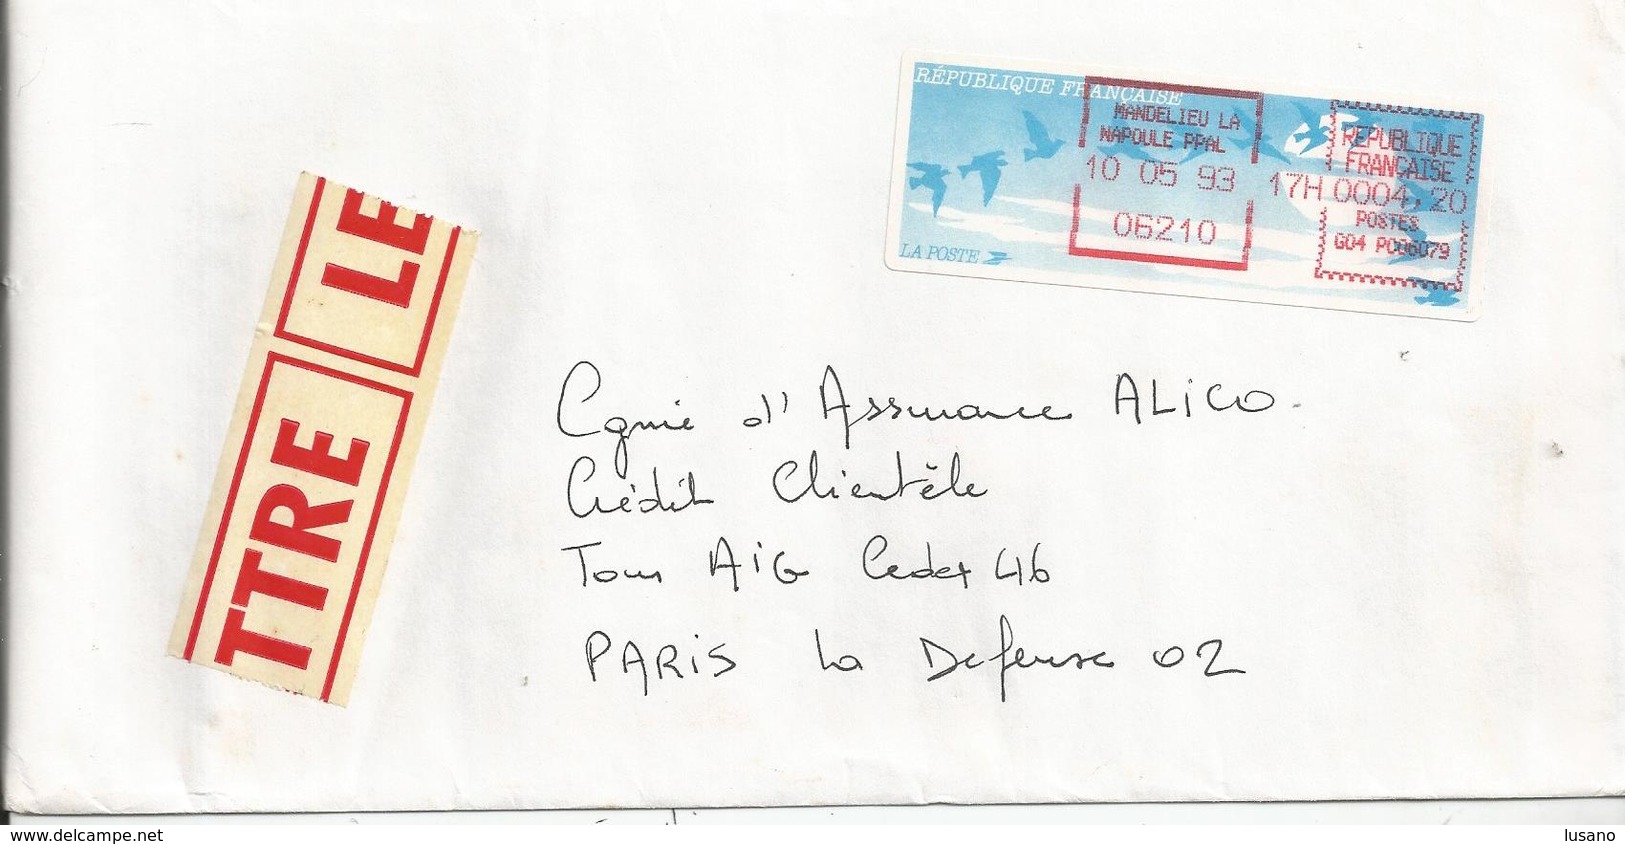 RÉPUBLIQUE FRANÇAISE
MANDELIEU LA
NAPOULE PPAL
10 05 93
06210
REPUBLIQUE
FRANÇAISE
17H 0004,20
POSTES
G04 PC06079
LA POSTE
TTRE LE
Cgnie d'Assurance ALiCO.
Crédit Clientèle
Tour AiG Cedex 46
PARiS la Défense 02
www.delcampe.net
lusano